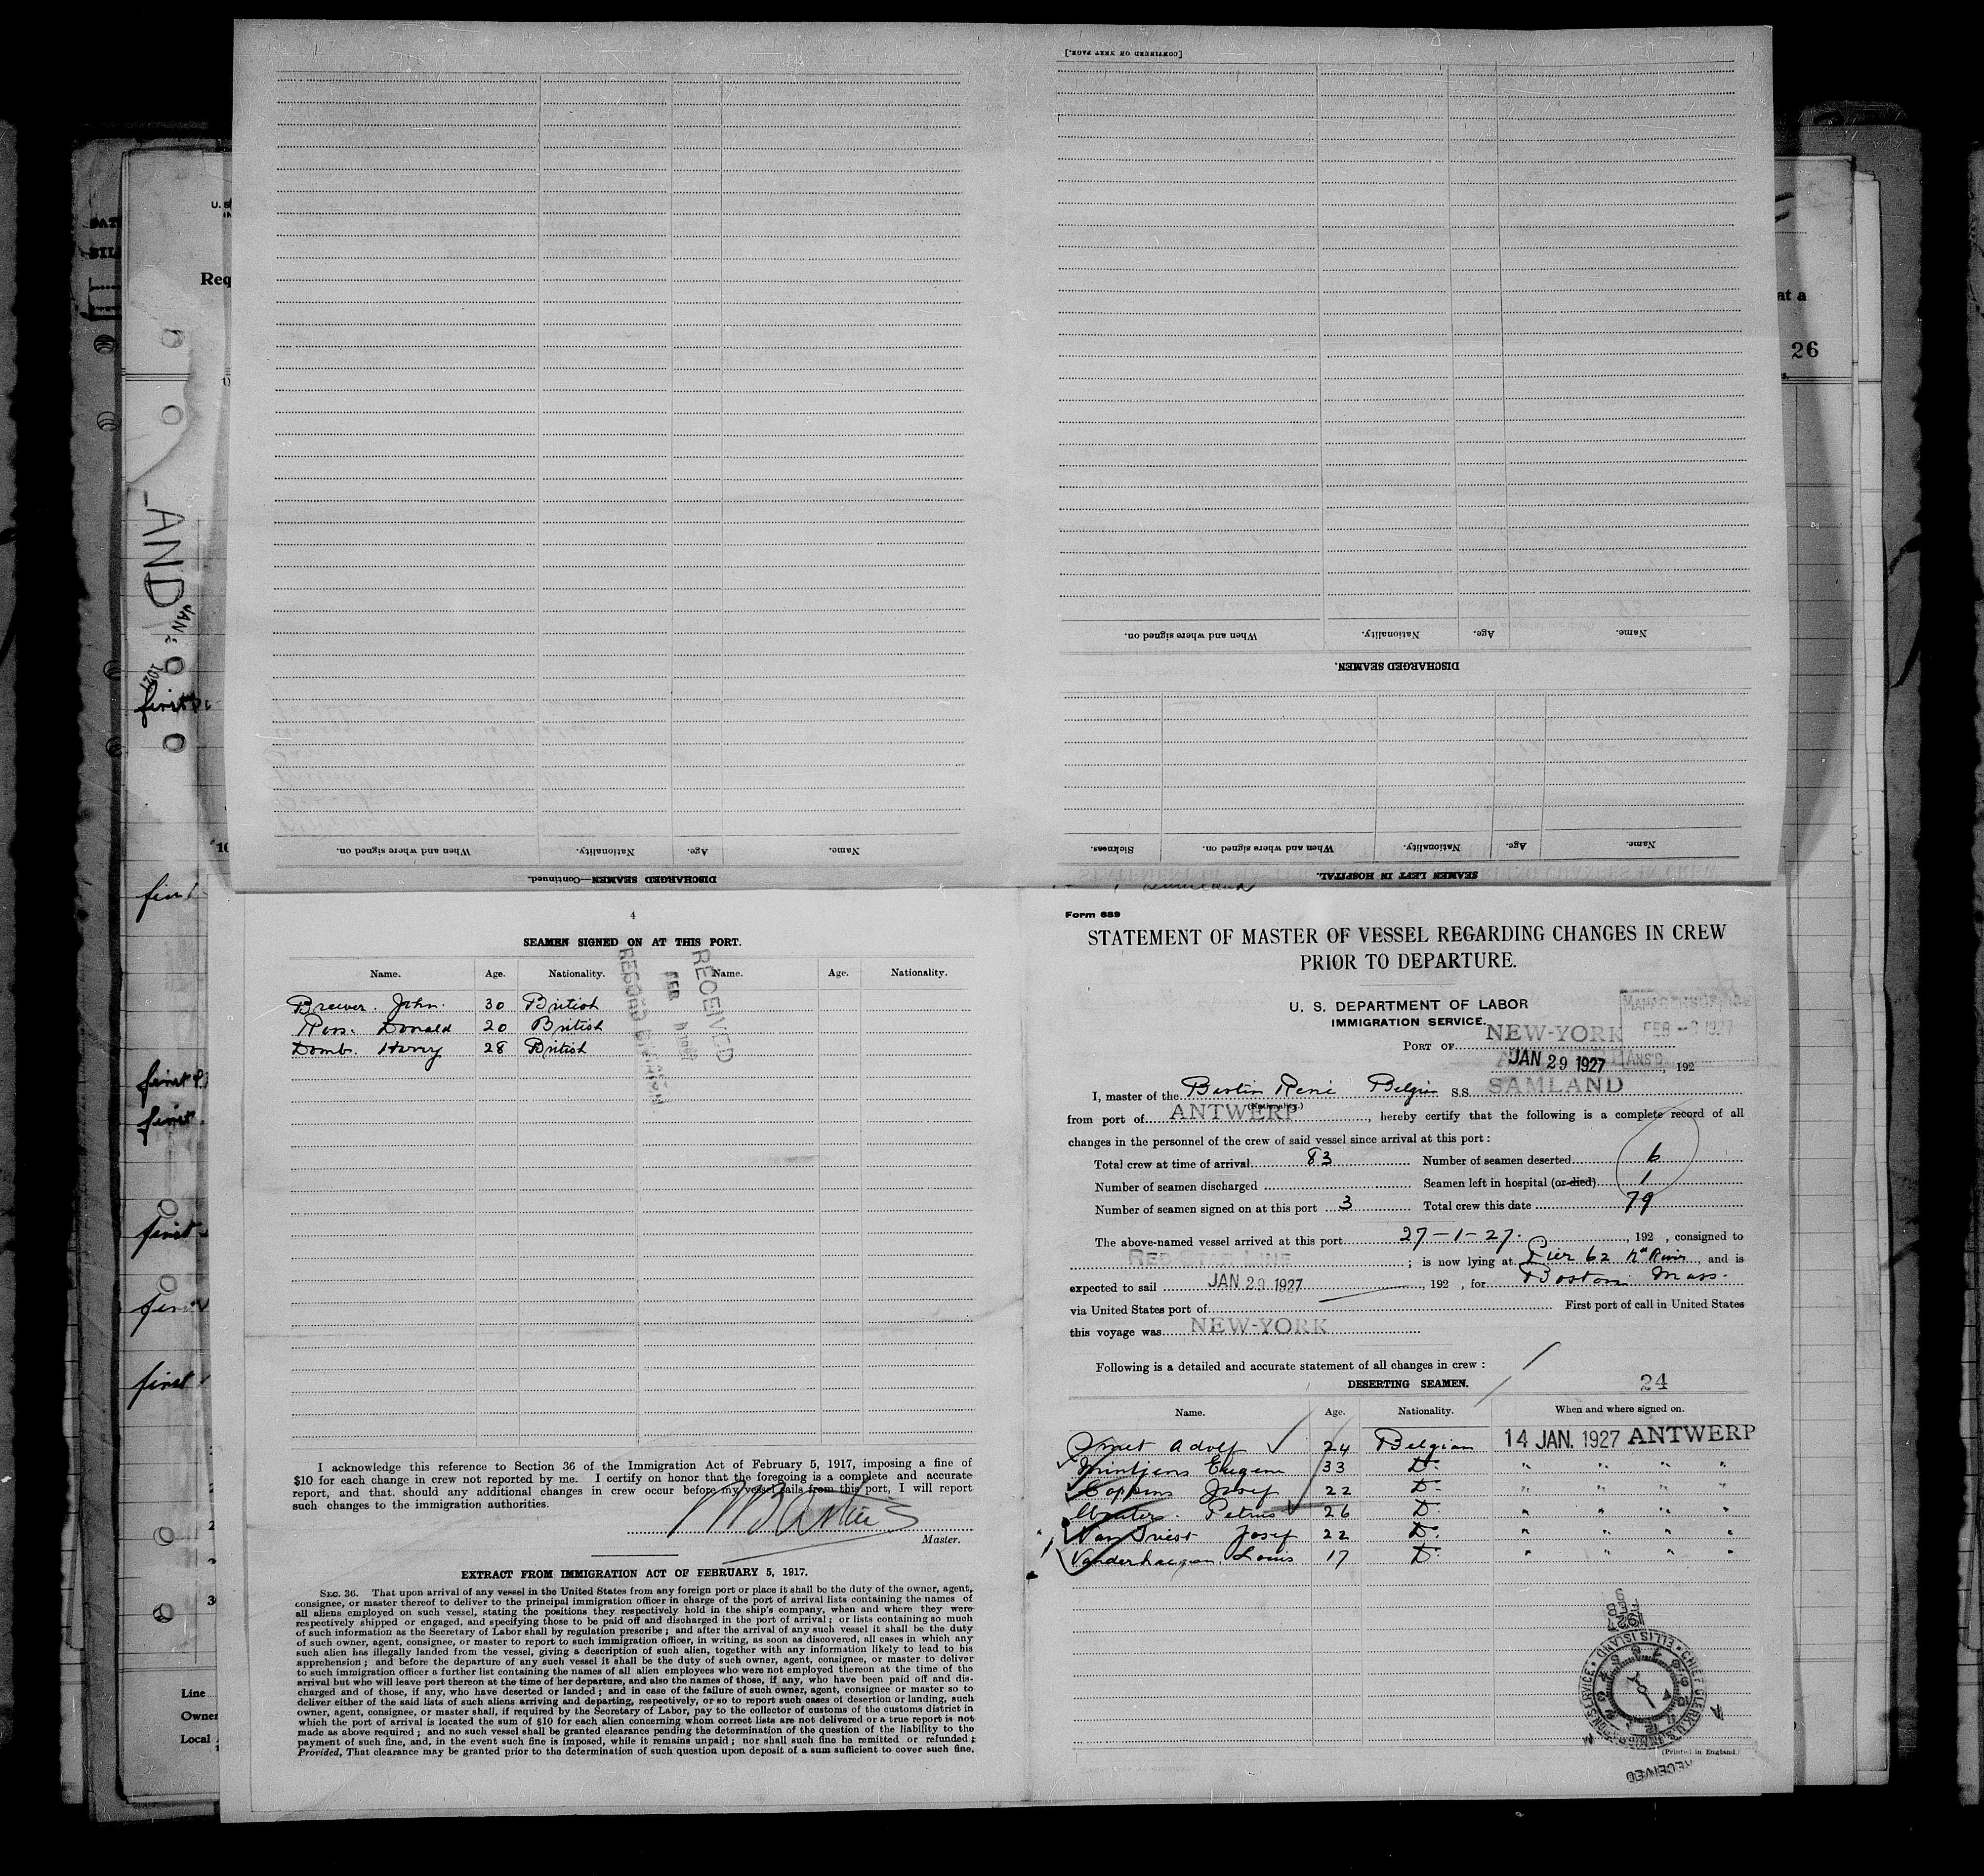 [CONTINUED ON NEXT PAGE.]
When and where signed on. Nationality. Age. Name.
DISCHARGED SEAMEN.
Sickness. When and where signed on. Nationality. Age. Name.
SEAMEN LEFT IN HOSPITAL.
When and where signed on. Nationality. Age. Name.
DISCHARGED SEAMEN—Continued.
U. S
IN
Req
at a
26
AND
JAN
1927
first
first
first
first
first
first
first
Line
Owner
Local
4
SEAMEN SIGNED ON AT THIS PORT.
Name. Age. Nationality. Name. Age. Nationality.
RECEIVED
FEB
RECORD DIVISION
Brewer. John. 30 British
Ross. Donald 20 British
Dombs. Harry 28 British
I acknowledge this reference to Section 36 of the Immigration Act of February 5, 1917, imposing a fine of
$10 for each change in crew not reported by me. I certify on honor that the foregoing is a complete and accurate
report, and that should any additional changes in crew occur before my vessel sails from this port, I will report
such changes to the immigration authorities.
Master.
EXTRACT FROM IMMIGRATION ACT OF FEBRUARY 5, 1917.
SEC. 36. That upon arrival of any vessel in the United States from any foreign port or place it shall be the duty of the owner, agent,
consignee, or master thereof to deliver to the principal immigration officer in charge of the port of arrival lists containing the names of
all aliens employed on such vessel, stating the positions they respectively hold in the ship's company, when and where they were
respectively shipped or engaged, and specifying those to be paid off and discharged in the port of arrival; or lists containing so much
of such information as the Secretary of Labor shall by regulation prescribe; and after the arrival of any such vessel it shall be the duty
of such owner, agent, consignee, or master to report to such immigration officer, in writing, as soon as discovered, all cases in which any
such alien has illegally landed from the vessel, giving a description of such alien, together with any information likely to lead to his
apprehension; and before the departure of any such vessel it shall be the duty of such owner, agent, consignee, or master to deliver
to such immigration officer a further list containing the names of all alien employees who were not employed thereon at the time of the
arrival but who will leave port thereon at the time of her departure, and also the names of those, if any, who have been paid off and dis-
charged and of those, if any, who have deserted or landed; and in case of the failure of such owner, agent, consignee or master so to
deliver either of the said lists of such aliens arriving and departing, respectively, or so to report such cases of desertion or landing, such
owner, agent, consignee, or master, shall, if required by the Secretary of Labor, pay to the collector of customs of the customs district in
which the port of arrival is located the sum of $10 for each alien concerning whom correct lists are not delivered or a true report is not
made as above required; and no such vessel shall be granted clearance pending the determination of the question of the liability to the
payment of such fine, and, in the event such fine is imposed, while it remains unpaid; nor shall such fine be remitted or refunded;
Provided, That clearance may be granted prior to the determination of such question upon deposit of a sum sufficient to cover such fine.
Form 689
STATEMENT OF MASTER OF VESSEL REGARDING CHANGES IN CREW
PRIOR TO DEPARTURE.
U. S. DEPARTMENT OF LABOR
IMMIGRATION SERVICE.
FEB - 2 1927
ANS'D
PORT OF NEW-YORK
JAN 29 1927, 192
I, master of the Bastin René Belgian S.S. SAMLAND
(Nationality.)
from port of ANTWERP, hereby certify that the following is a complete record of all
changes in the personnel of the crew of said vessel since arrival at this port:
Total crew at time of arrival 83 Number of seamen deserted 6
Number of seamen discharged Seamen left in hospital (or died) 1
Number of seamen signed on at this port 3 Total crew this date 79
The above-named vessel arrived at this port 27-1-27., 192 , consigned to
RED STAR LINE ; is now lying at Pier 62 Nh River, and is
expected to sail JAN 29 1927, 192 , for Boston Mass.
via United States port of First port of call in United States
this voyage was NEW-YORK
Following is a detailed and accurate statement of all changes in crew:
DESERTING SEAMEN. 24
Name. Age. Nationality. When and where signed on.
Smet Adolf 24 Belgian 14 JAN. 1927 ANTWERP
Mintjens Eugene 33 Do " " " "
Coppens Josef 22 Do " " " "
Wouters. Petrus 26 Do " " " "
Van Driest Josef 22 Do " " " "
Vanderhaegen. Louis 17 Do " " " "
CHIEF CLERK U.S. IMMIGRATION SERVICE • ELLIS ISLAND
(Printed in England.)
RECEIVED